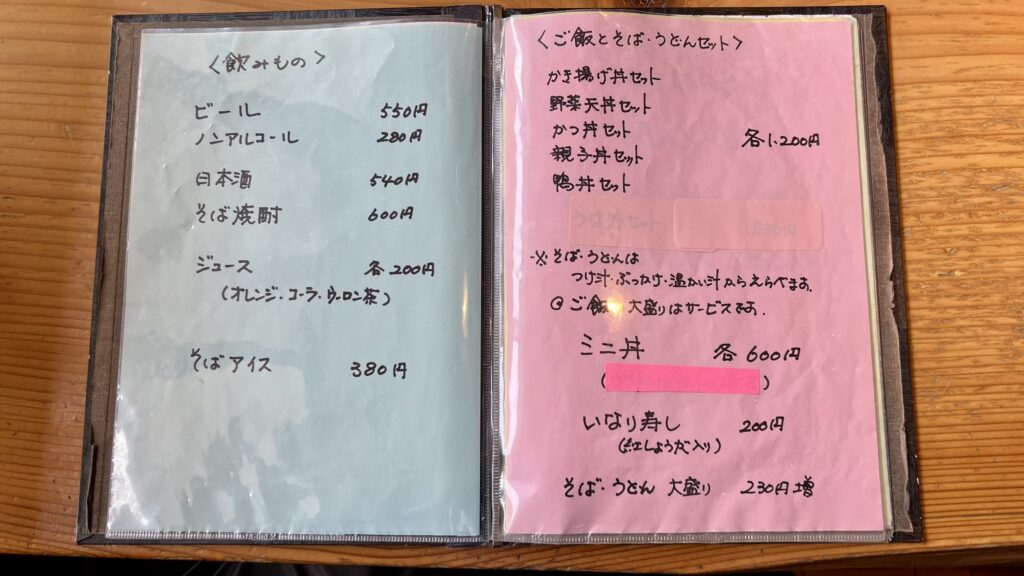 〈飲みもの〉
ビール 550円
ノンアルコール 280円
日本酒 540円
そば焼酎 600円
ジュース 各200円
(オレンジ・コーラ・ウーロン茶)
そばアイス 380円
〈ご飯とそば・うどんセット〉
かき揚げ丼セット
野菜天丼セット
かつ丼セット
各1,200円
親子丼セット
鴨丼セット
※そば・うどんは
つけ汁・ぶっかけ・温かい汁からえらべます。
◎ご飯 大盛りはサービスです.
ミニ丼 各600円
いなり寿し 200円
(紅しょうが入り)
そば・うどん 大盛り 230円増